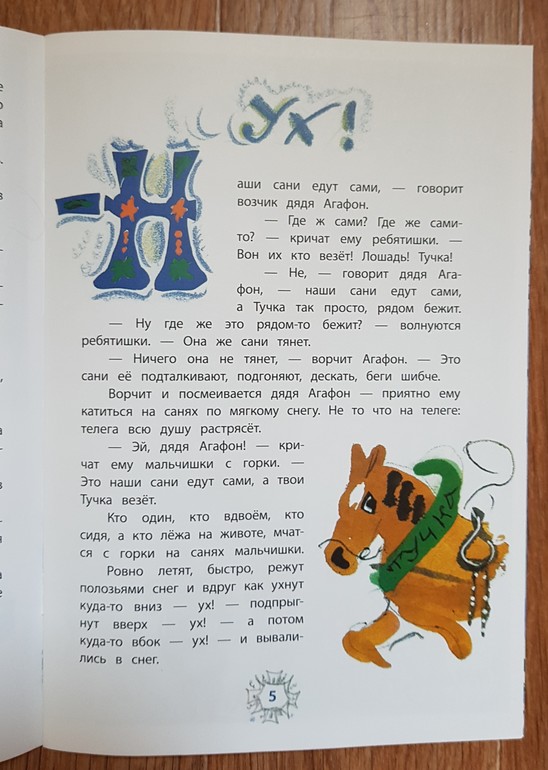 Ух!
Наши сани едут сами, — говорит
возчик дядя Агафон.
— Где ж сами? Где же сами-
то? — кричат ему ребятишки. —
Вон их кто везёт! Лошадь! Тучка!
— Не, — говорит дядя Ага-
фон, — наши сани едут сами,
а Тучка так просто, рядом бежит.
— Ну где же это рядом-то бежит? — волнуются
ребятишки. — Она же сани тянет.
— Ничего она не тянет, — ворчит Агафон. — Это
сани её подталкивают, подгоняют, дескать, беги шибче.
Ворчит и посмеивается дядя Агафон — приятно ему
катиться на санях по мягкому снегу. Не то что на телеге:
телега всю душу растрясёт.
— Эй, дядя Агафон! — кри-
чат ему мальчишки с горки. —
Это наши сани едут сами, а твои
Тучка везёт.
Кто один, кто вдвоём, кто
сидя, а кто лёжа на животе, мчат-
ся с горки на санях мальчишки.
Ровно летят, быстро, режут
полозьями снег и вдруг как ухнут
куда-то вниз — ух! — подпрыг-
нут вверх — ух! — а потом
куда-то вбок — ух! — и вывали-
лись в снег.
тучка
5